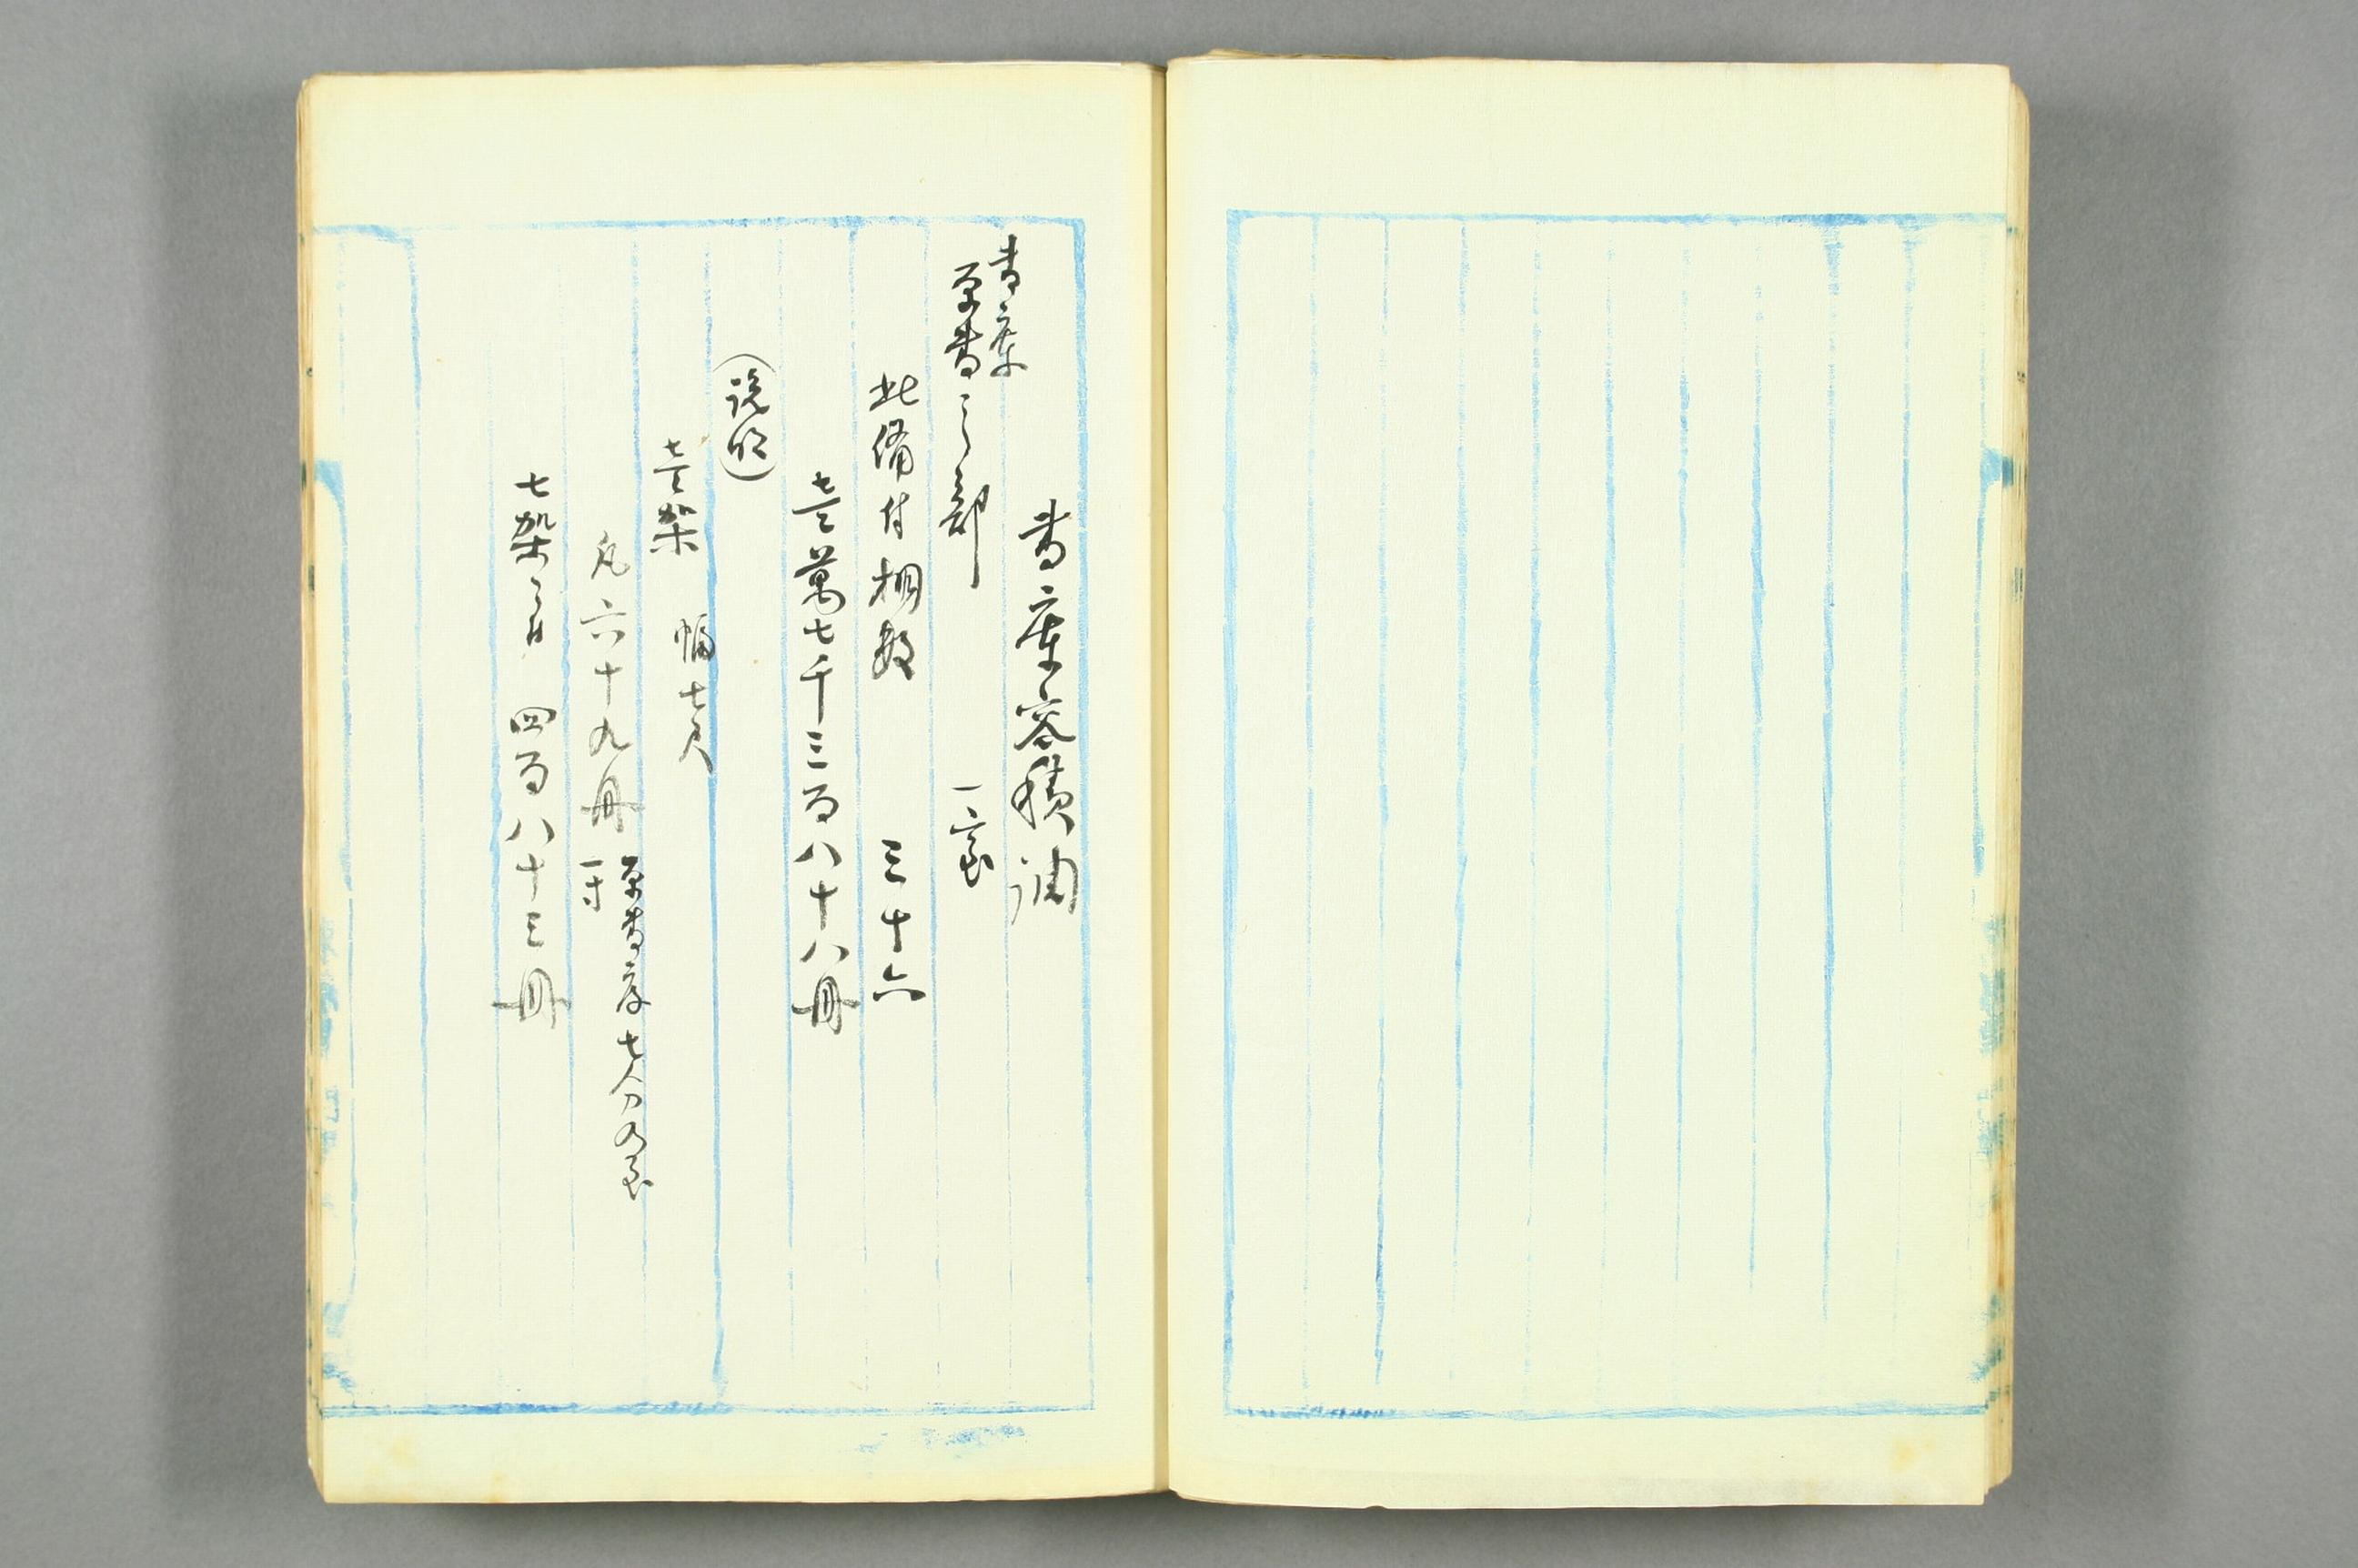 書庫容積調
書庫
原書之部 一室
此備付棚数 三十六
壱萬七千三百八十八冊
(説明)
壱架 幅七尺
凡六十九冊 原書厚七分乃至
一寸
七架 四百八十三冊